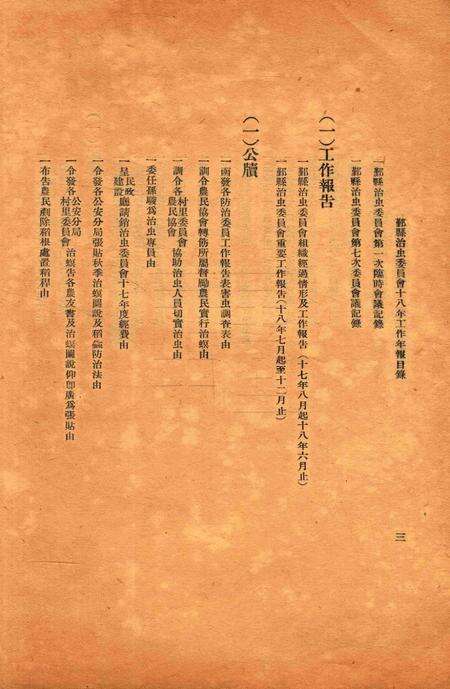 鄞縣治虫委員會十八年工作年報目錄
三
一鄞縣治虫委員會第一次臨時會議記錄
一鄞縣治虫委員會第七次委員會議記錄
(一)工作報告
一鄞縣治虫委員會組織經過情形及工作報告(十七年八月起十八年六月止)
一鄞縣治虫委員會重要工作報告(十八年七月起至十二月止)
(一)公牘
一函發各防治委員工作報告表害虫調查表由
一訓令農民協會轉飭所屬督勵農民實行治螟由
一訓令各村里委員會農民協會協助治虫人員切實治虫由
一委任孫職爲治虫專員由
一呈民政建設廳請給治虫委員會十七年度經費由
一令發各公安分局張貼秋季治螟圖說及稻蝨防治法由
一令發各公安分局村里委員會治螟告各農友書及治螟圖說仰卽廣爲張貼由
一布告農民剷除稻根處置稻稈由